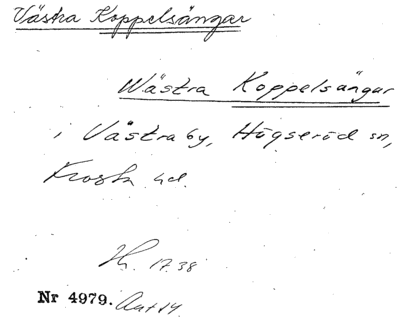 Västra Koppelsängar
Wästra Koppelsängar
i Västraby, Högseröd sn,
Frosta hd.
17.38
Nr 4979.